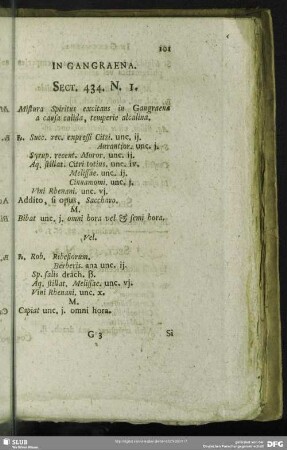 101
IN GANGRAENA.
SECT. 434. N. 1.
Mistura Spiritus excitans in Gangraena
a causa calida, temperie alcalina.
℞. Succ. rec. expressi Citri. unc. ij.
Aurantior. unc. j.
Syrup. recent. Moror. unc. ij.
Aq. stillat. Citri totius. unc. iv.
Melissae. unc. ij.
Cinnamomi. unc. j.
Vini Rhenani. unc. vj.
Addito, si opus, Saccharo.
M.
Bibat unc. j. omni hora vel & semi hora.
Vel.
℞. Rob. Ribesiorum.
Berberis. ana unc. ij.
Sp. salis drach. ß.
Aq. stillat. Melissae. unc. vj.
Vini Rhenani. unc. x.
M.
Capiat unc. j. omni hora.
G 3 Si
SLUB
Wir führen Wissen.
DFG